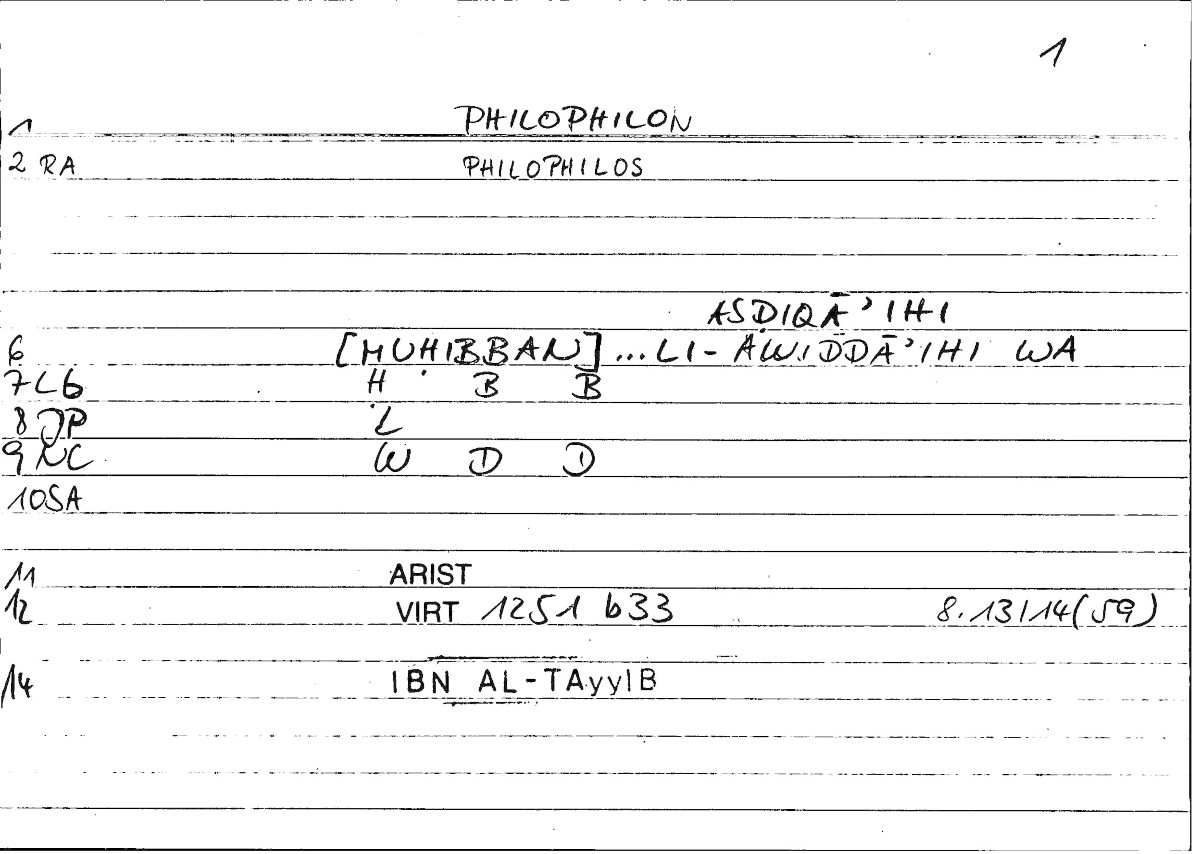 1
1 PHILOPHILON
2 RA PHILOPHILOS
ASDIQĀ'IHI
6 [MUḤIBBAN] ... LI-AWIDDĀ'IHI WA
7 LG H B B
8 JP L
9 NC W D D
10 SA
11 ARIST
12 VIRT 1251 b33 8.13/14(59)
14 IBN AL-TAyyIB